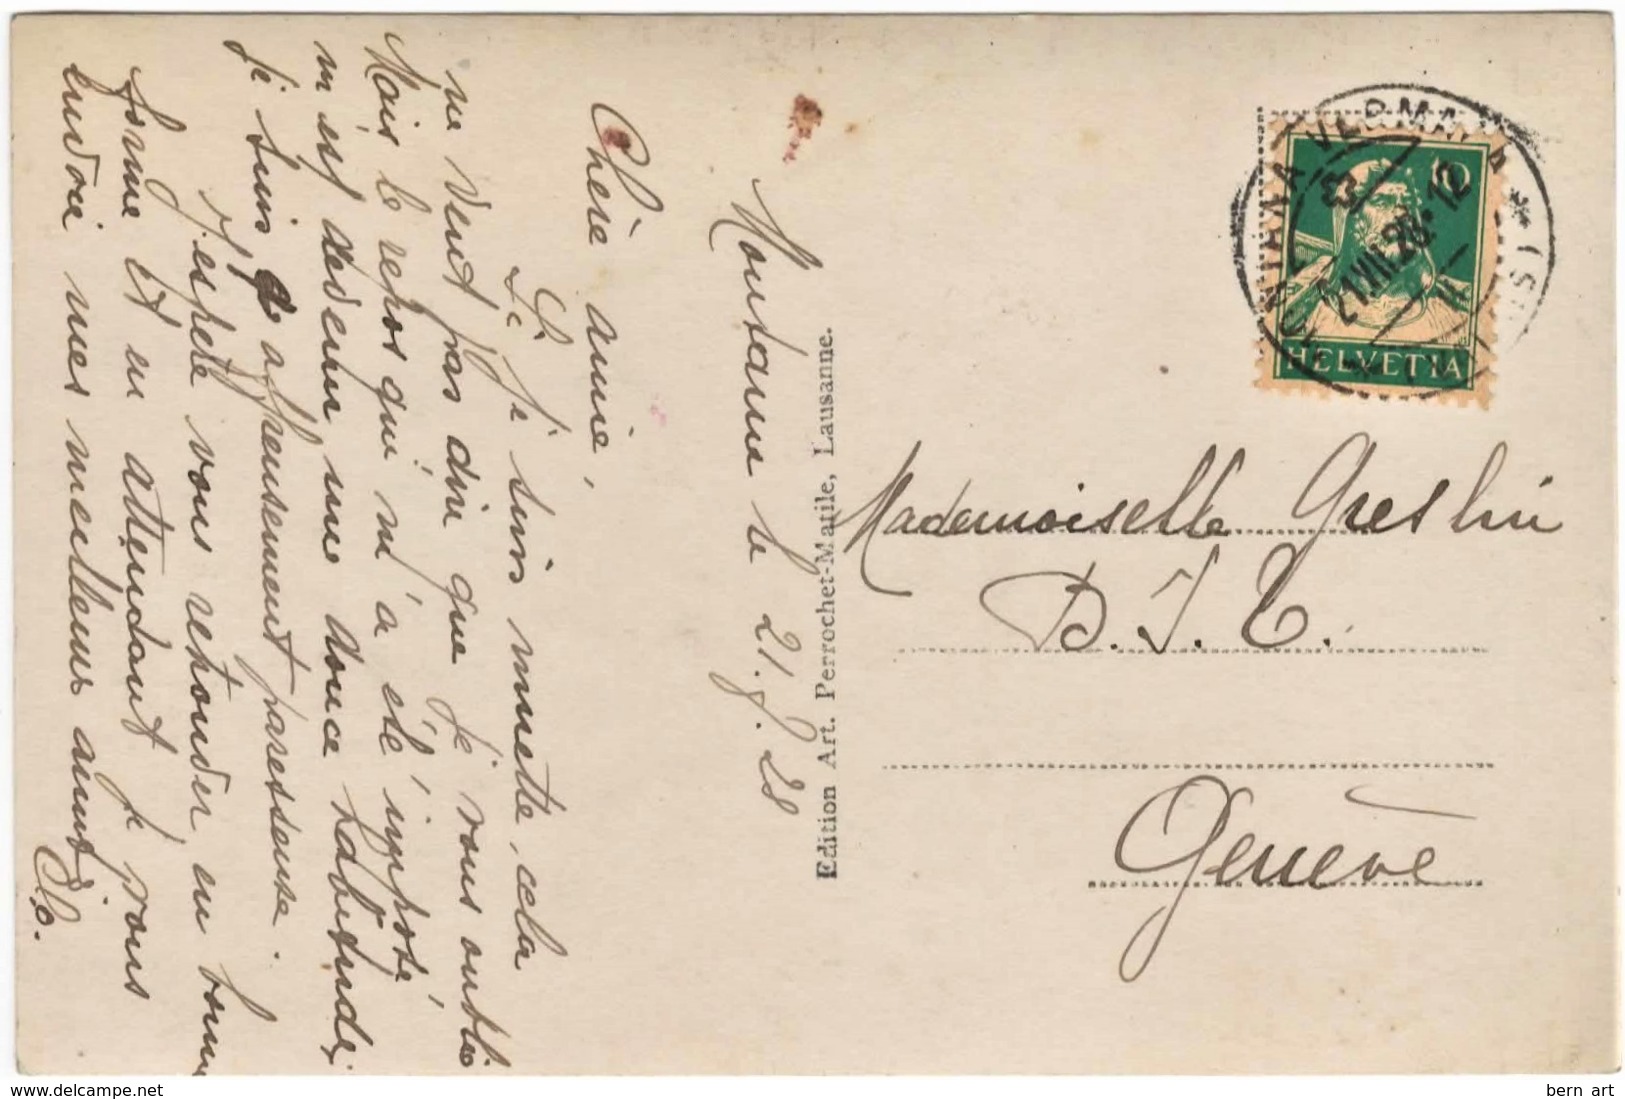 Montana le 21.8.28
Chère amie,
Si je suis muette, cela
ne veut pas dire que je vous oublie
Mais le repos qui m'a été imposé
m'est devenu une douce habitude,
je suis affreusement paresseuse.
J'espère vous retrouver en bonne
forme et en attendant je vous
envoie mes meilleurs
Edition Art. Perrochet-Matile, Lausanne.
MONTANA VERMALA
21.VIII.28.12
10
HELVETIA
Mademoiselle Greslin
B. I. T.
Genève
www.delcampe.net
bern art